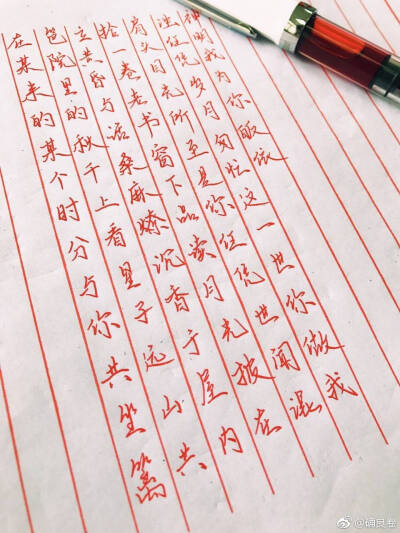 在某来的某个时分与你共坐篱
笆院里的秋千上看星子远山共
立黄昏与话桑麻燎沉香于屋内
拾一卷老书窗下品读月光披在
肩头目光所至是你任凭世闻混
浊任凭岁月匆忙这一世你做我
神明我为你皈依